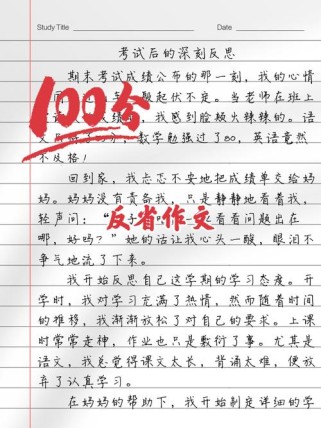 Study Title
Date
考试后的深刻反思
期末考试成绩公布的那一刻,我的心情
起伏不定。当老师在班上
我感到脸颊火辣辣的。语
数学勉强过了80,英语竟然
不及格!
100分
回到家,我忐忑不安地把成绩单交给妈
妈。妈妈没有责备我,只是静静地看着我,
轻声问:“
看看问题出在
哪,好吗?”她的话让我心头一酸,眼泪不
争气地流了下来。
反省作文
我开始反思自己这学期的学习态度。开
学时,我对学习充满了热情,然而随着时间
的推移,我渐渐放松了对自己的要求。上课
时常常走神,作业也只是敷衍了事。尤其是
语文,我总觉得课文太长,背诵太难,便放
弃了认真学习。
在妈妈的帮助下,我开始制定详细的学